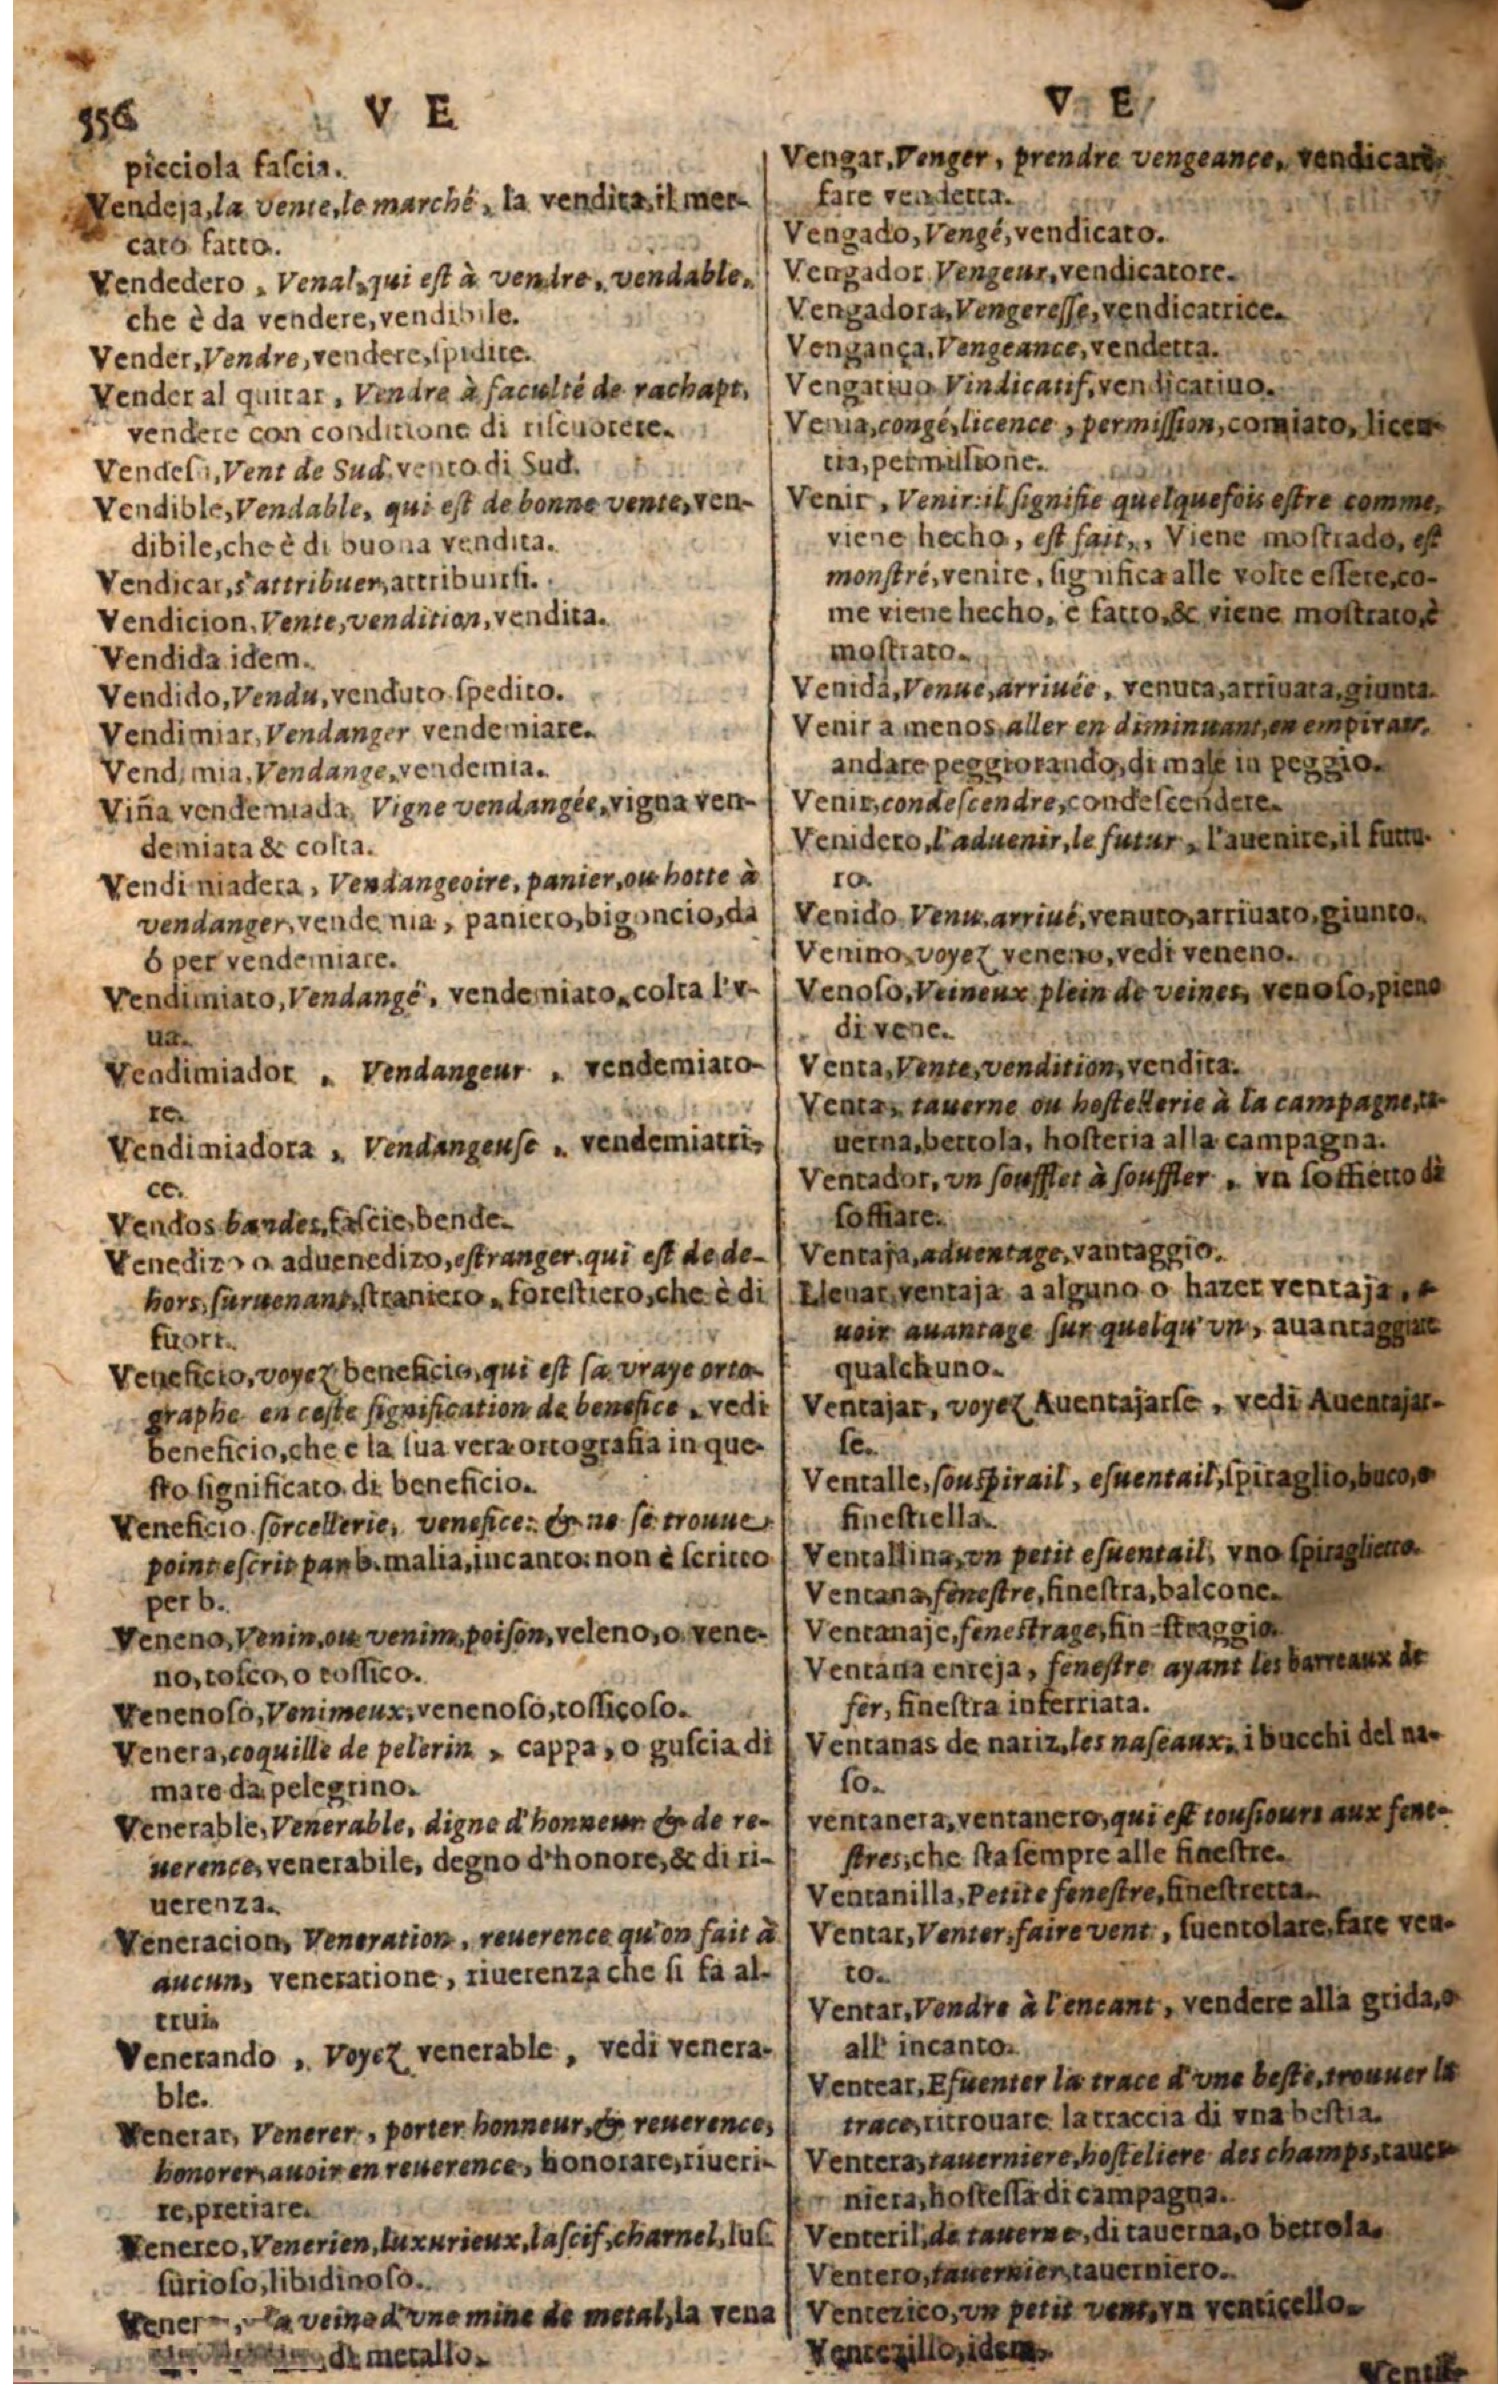 556 V E
picciola fascia.
Vendeja, la vente, le marché, la vendita, il mer-
cato fatto.
Vendedero, Venal, qui est à vendre, vendable,
che è da vendere, vendibile.
Vender, Vendre, vendere, spidire.
Vender al quitar, Vendre à faculté de rachapt,
vendere con conditione di riscuotere.
Vendesu, Vent de Sud, vento di Sud.
Vendible, Vendable, qui est de bonne vente, ven-
dibile, che è di buona vendita.
Vendicar, s'attribuer, attribuirsi.
Vendicion, Vente, vendition, vendita.
Vendida idem.
Vendido, Vendu, venduto, spedito.
Vendimiar, Vendanger vendemiare.
Vendimia, Vendange, vendemia.
Viña vendemiada, Vigne vendangée, vigna ven-
demiata & colta.
Vendimiadera, Vendangeoire, panier, ou hotte à
vendanger, vendemia, paniero, bigoncio, da
ò per vendemiare.
Vendimiato, Vendangé, vendemiato, colta l'v-
ua.
Vendimiador, Vendangeur, vendemiato-
re.
Vendimiadora, Vendangeuse, vendemiatri-
ce.
Vendos bandes, fascie, bende.
Venedizo o aduenedizo, estranger, qui est de de-
hors, suruenant, straniero, forestiero, che è di
fuori.
Veneficio, voyez beneficio, qui est sa vraye orto-
graphe en ceste signification de benefice, vedi
beneficio, che e la sua vera ortografia in que-
sto significato di beneficio.
Veneficio sorcellerie, venefice: & ne se trouue
point escrit par b. malia, incanto: non è scritto
per b.
Veneno, Venin, ou venim, poison, veleno, o vene-
no, tosco, o tossico.
Venenoso, Venimeux, venenoso, tossicoso.
Venera, coquille de pelerin, cappa, o guscia di
mare da pelegrino.
Venerable, Venerable, digne d'honneur & de re-
uerence, venerabile, degno d'honore, & di ri-
uerenza.
Veneracion, Veneration, reuerence qu'on fait à
aucun, veneratione, riuerenza che si fa al-
trui.
Venerando, Voyez venerable, vedi venera-
ble.
Venerar, Venerer, porter honneur, & reuerence,
honorer, auoir en reuerence, honorare, riueri-
re, pretiare.
Venereo, Venerien, luxurieux, lascif, charnel, lus
surioso, libidinoso.
la veine d'vne mine de metal, la vena
di metallo.
V E
Vengar, Venger, prendre vengeance, vendicare
fare vendetta.
Vengado, Vengé, vendicato.
Vengador Vengeur, vendicatore.
Vengadora, Vengeresse, vendicatrice.
Vengança, Vengeance, vendetta.
Vengatiuo Vindicatif, vendicatiuo.
Venia, congé, licence, permission, comiato, licen-
tia, permissione.
Venir, Venir: il signifie quelquefois estre comme,
viene hecho, est fait, Viene mostrado, est
monstré, venire, significa alle volte essere, co-
me viene hecho, è fatto, & viene mostrato, è
mostrato.
Venida, Venue, arriuée, venuta, arriuata, giunta.
Venir a menos, aller en diminuant, en empirant,
andare peggiorando, di male in peggio.
Venir, condescendre, condescendere.
Venidero, l'aduenir, le futur, l'auenire, il futu-
ro.
Venido Venu, arriué, venuto, arriuato, giunto.
Venino, voyez veneno, vedi veneno.
Venoso, Veineux plein de veines, venoso, pieno
di vene.
Venta, Vente, vendition, vendita.
Venta, tauerne ou hostellerie à la campagne, ta-
uerna, bettola, hosteria alla campagna.
Ventador, vn soufflet à souffler, vn soffietto da
soffiare.
Ventaja, aduentage, vantaggio.
Lleuar, ventaja a alguno o hazer ventaja, a-
uoir auantage sur quelqu'vn, auantaggiare
qualchuno.
Ventajar, voyez Auentajarse, vedi Auentajar-
se.
Ventalle, souspirail, esuentail, spiraglio, buco, o
finestrella.
Ventallina, vn petit esuentail, vno spiraglietto.
Ventana, fenestre, finestra, balcone.
Ventanaje, fenestrage, finestraggio.
Ventana enreja, fenestre ayant les barreaux de
fer, finestra inferriata.
Ventanas de nariz, les naseaux, i bucchi del na-
so.
ventanera, ventanero, qui est tousiours aux fene-
stres, che sta sempre alle finestre.
Ventanilla, Petite fenestre, finestretta.
Ventar, Venter, faire vent, suentolare, fare ven-
to.
Ventar, Vendre à l'encant, vendere alla grida, o
all' incanto.
Ventear, Esuenter la trace d'vne beste, trouuer la
trace, ritrouare la traccia di vna bestia.
Ventera, tauerniere, hosteliere des champs, tauer-
niera, hostessa di campagna.
Venteril, de tauerne, di tauerna, o bettola.
Ventero, tauernier, tauerniero.
Ventezico, vn petit vent, vn venticello.
Ventezillo, idem.